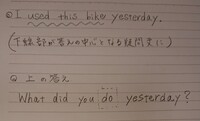 ◎ I used this bike yesterday.
(下線部が答えの中心となる疑問文に)
Q 上の答え
What did you do yesterday?